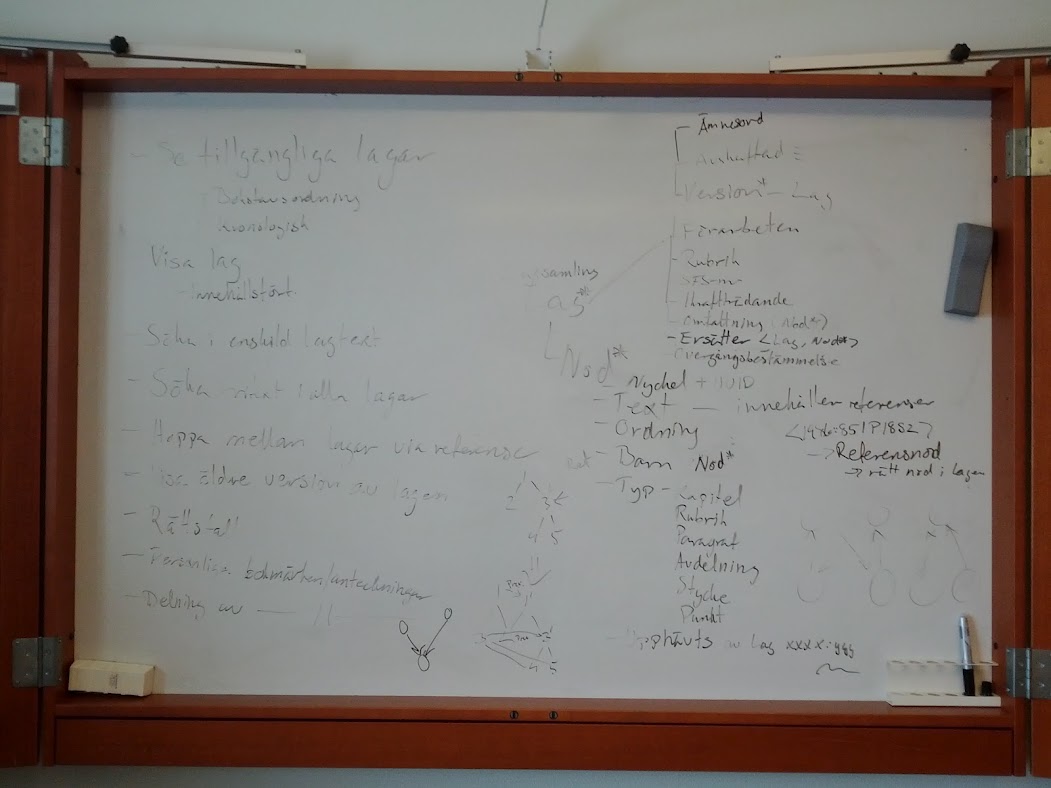 - Se tillgängliga lagar
Bokstavsordning
kronologisk
Visa lag
- Innehållsfört.
- Söka i enskild lagtext
- Söka i alla lagar
- Hoppa mellan lagar via referense
- Visa äldre version av lagen
- Rättsfall
- Personliga bokmärken/anteckningar
- Delning av — 11
- Ämnesord
- Version* - Lag
- Förarbeten
- Rubrik
- SFS-nr
- Ikraftträdande
- Omfattning (Nod*)
- Ersätter <Lag, Nod*>
Övergångsbestämmelse
Nod*
- Nyckel + UUID
- Text — innehåller referenser
- Ordning
<1986:851P18S2>
-> Referensnod
-> rätt nod i lagen
- Barn Nod*
- Typ - Kapitel
Rubrik
Paragraf
Avdelning
Stycke
Punkt
- Upphävts av Lag xxxx:yyy
2 3
4 5
4 5